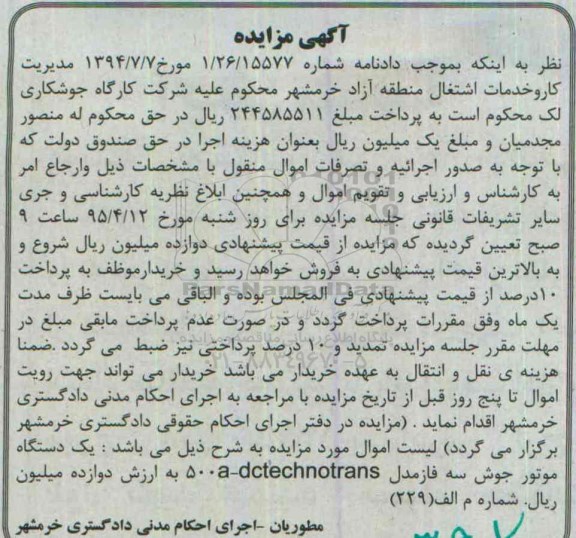 آگهی مزایده
نظر به اینکه بموجب دادنامه شماره ۱/۲۶/۱۵۵۷۷ مورخ۱۳۹۴/۷/۷ مدیریت
کاروخدمات اشتغال منطقه آزاد خرمشهر محکوم علیه شرکت کارگاه جوشکاری
لک محکوم است به پرداخت مبلغ ۲۴۴۵۸۵۵۱۱ ریال در حق محکوم له منصور
مجدمیان و مبلغ یک میلیون ریال بعنوان هزینه اجرا در حق صندوق دولت که
با توجه به صدور اجرائیه و تصرفات اموال منقول با مشخصات ذیل وارجاع امر
به کارشناس و ارزیابی و تقویم اموال و همچنین ابلاغ نظریه کارشناسی و جری
سایر تشریفات قانونی جلسه مزایده برای روز شنبه مورخ ۹۵/۴/۱۲ ساعت ۹
صبح تعیین گردیده که مزایده از قیمت پیشنهادی دوازده میلیون ریال شروع و
به بالاترین قیمت پیشنهادی به فروش خواهد رسید و خریدارموظف به پرداخت
۱۰درصد از قیمت پیشنهادی فی المجلس بوده و الباقی می بایست ظرف مدت
یک ماه وفق مقررات پرداخت گردد و در صورت عدم پرداخت مابقی مبلغ در
مهلت مقرر جلسه مزایده تمدید و ۱۰ درصد پرداختی نیز ضبط می گردد .ضمنا
هزینه ی نقل و انتقال به عهده خریدار می باشد خریدار می تواند جهت رویت
اموال تا پنج روز قبل از تاریخ مزایده با مراجعه به اجرای احکام مدنی دادگستری
خرمشهر اقدام نماید . (مزایده در دفتر اجرای احکام حقوقی دادگستری خرمشهر
برگزار می گردد) لیست اموال مورد مزایده به شرح ذیل می باشد : یک دستگاه
موتور جوش سه فازمدل ۵۰۰a-dctechnotrans به ارزش دوازده میلیون
ریال. شماره م الف(۲۲۹)
مطوریان -اجرای احکام مدنی دادگستری خرمشهر
ParsNamadData